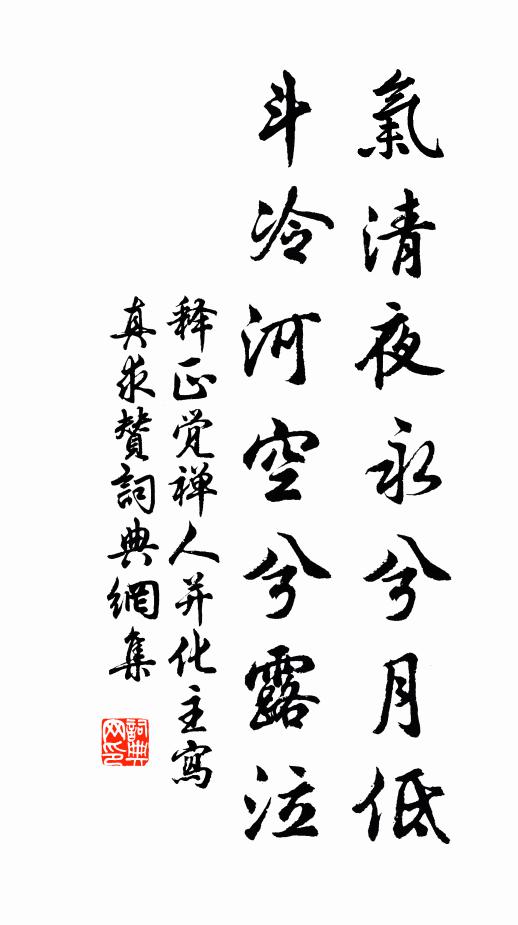 氣清夜永兮月低
斗冷河空兮露泣
释正觉禅人并化主寫
真求贊詞典網集
詞典
网印